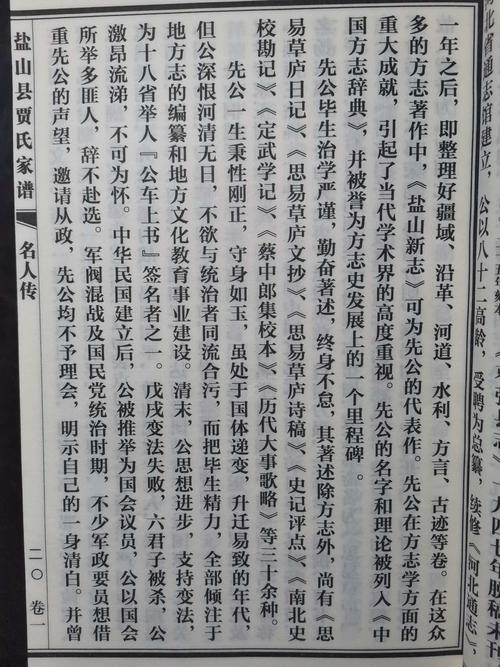 北省通志馆建立，公以八十二高龄，受聘为总纂，续修《河北通志》，
一年之后，即整理好疆域、沿革、河道、水利、方言、古迹等卷。在这众
多的方志著作中，《盐山新志》可为先公的代表作。先公在方志学方面的
重大成就，引起了当代学术界的高度重视。先公的名字和理论被列入《中
国方志辞典》，并被誉为方志史发展上的一个里程碑。
先公毕生治学严谨，勤奋著述，终身不怠，其著述除方志外，尚有《思
易草庐日记》、《思易草庐文抄》、《思易草庐诗稿》、《史记评点》、《南北史
校勘记》、《定武学记》、《蔡中郎集校本》、《历代大事歌略》等三十余种。
先公一生秉性刚正，守身如玉，虽处于国体递变，升迁易致的年代，
但公深恨河清无日，不欲与统治者同流合污，而把毕生精力，全部倾注于
地方志的编纂和地方文化教育事业建设。清末，公思想进步，支持变法，
为十八省举人『公车上书』签名者之一。戊戌变法失败，六君子被杀，公
激昂流涕，不可为怀。中华民国建立后，公被推举为国会议员，公以国会
所举多匪人，辞不赴选。军阀混战及国民党统治时期，不少军政要员想借
重先公的声望，邀请从政，先公均不予理会，明示自己的一身清白。并曾
盐山县贾氏家谱 名人传 二〇 卷一